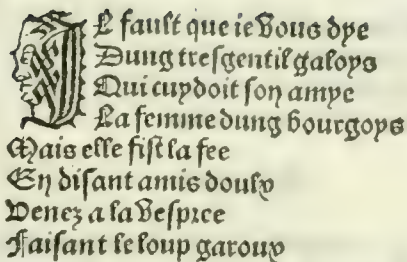 IL fault que ie vous dye
Dung tresgentil galoys
Qui cuydoit son amye
La femme dung bourgoys
Mais elle fist la fee
En disant amis doulx
Venez a la vespree
Faisant le loup garoux